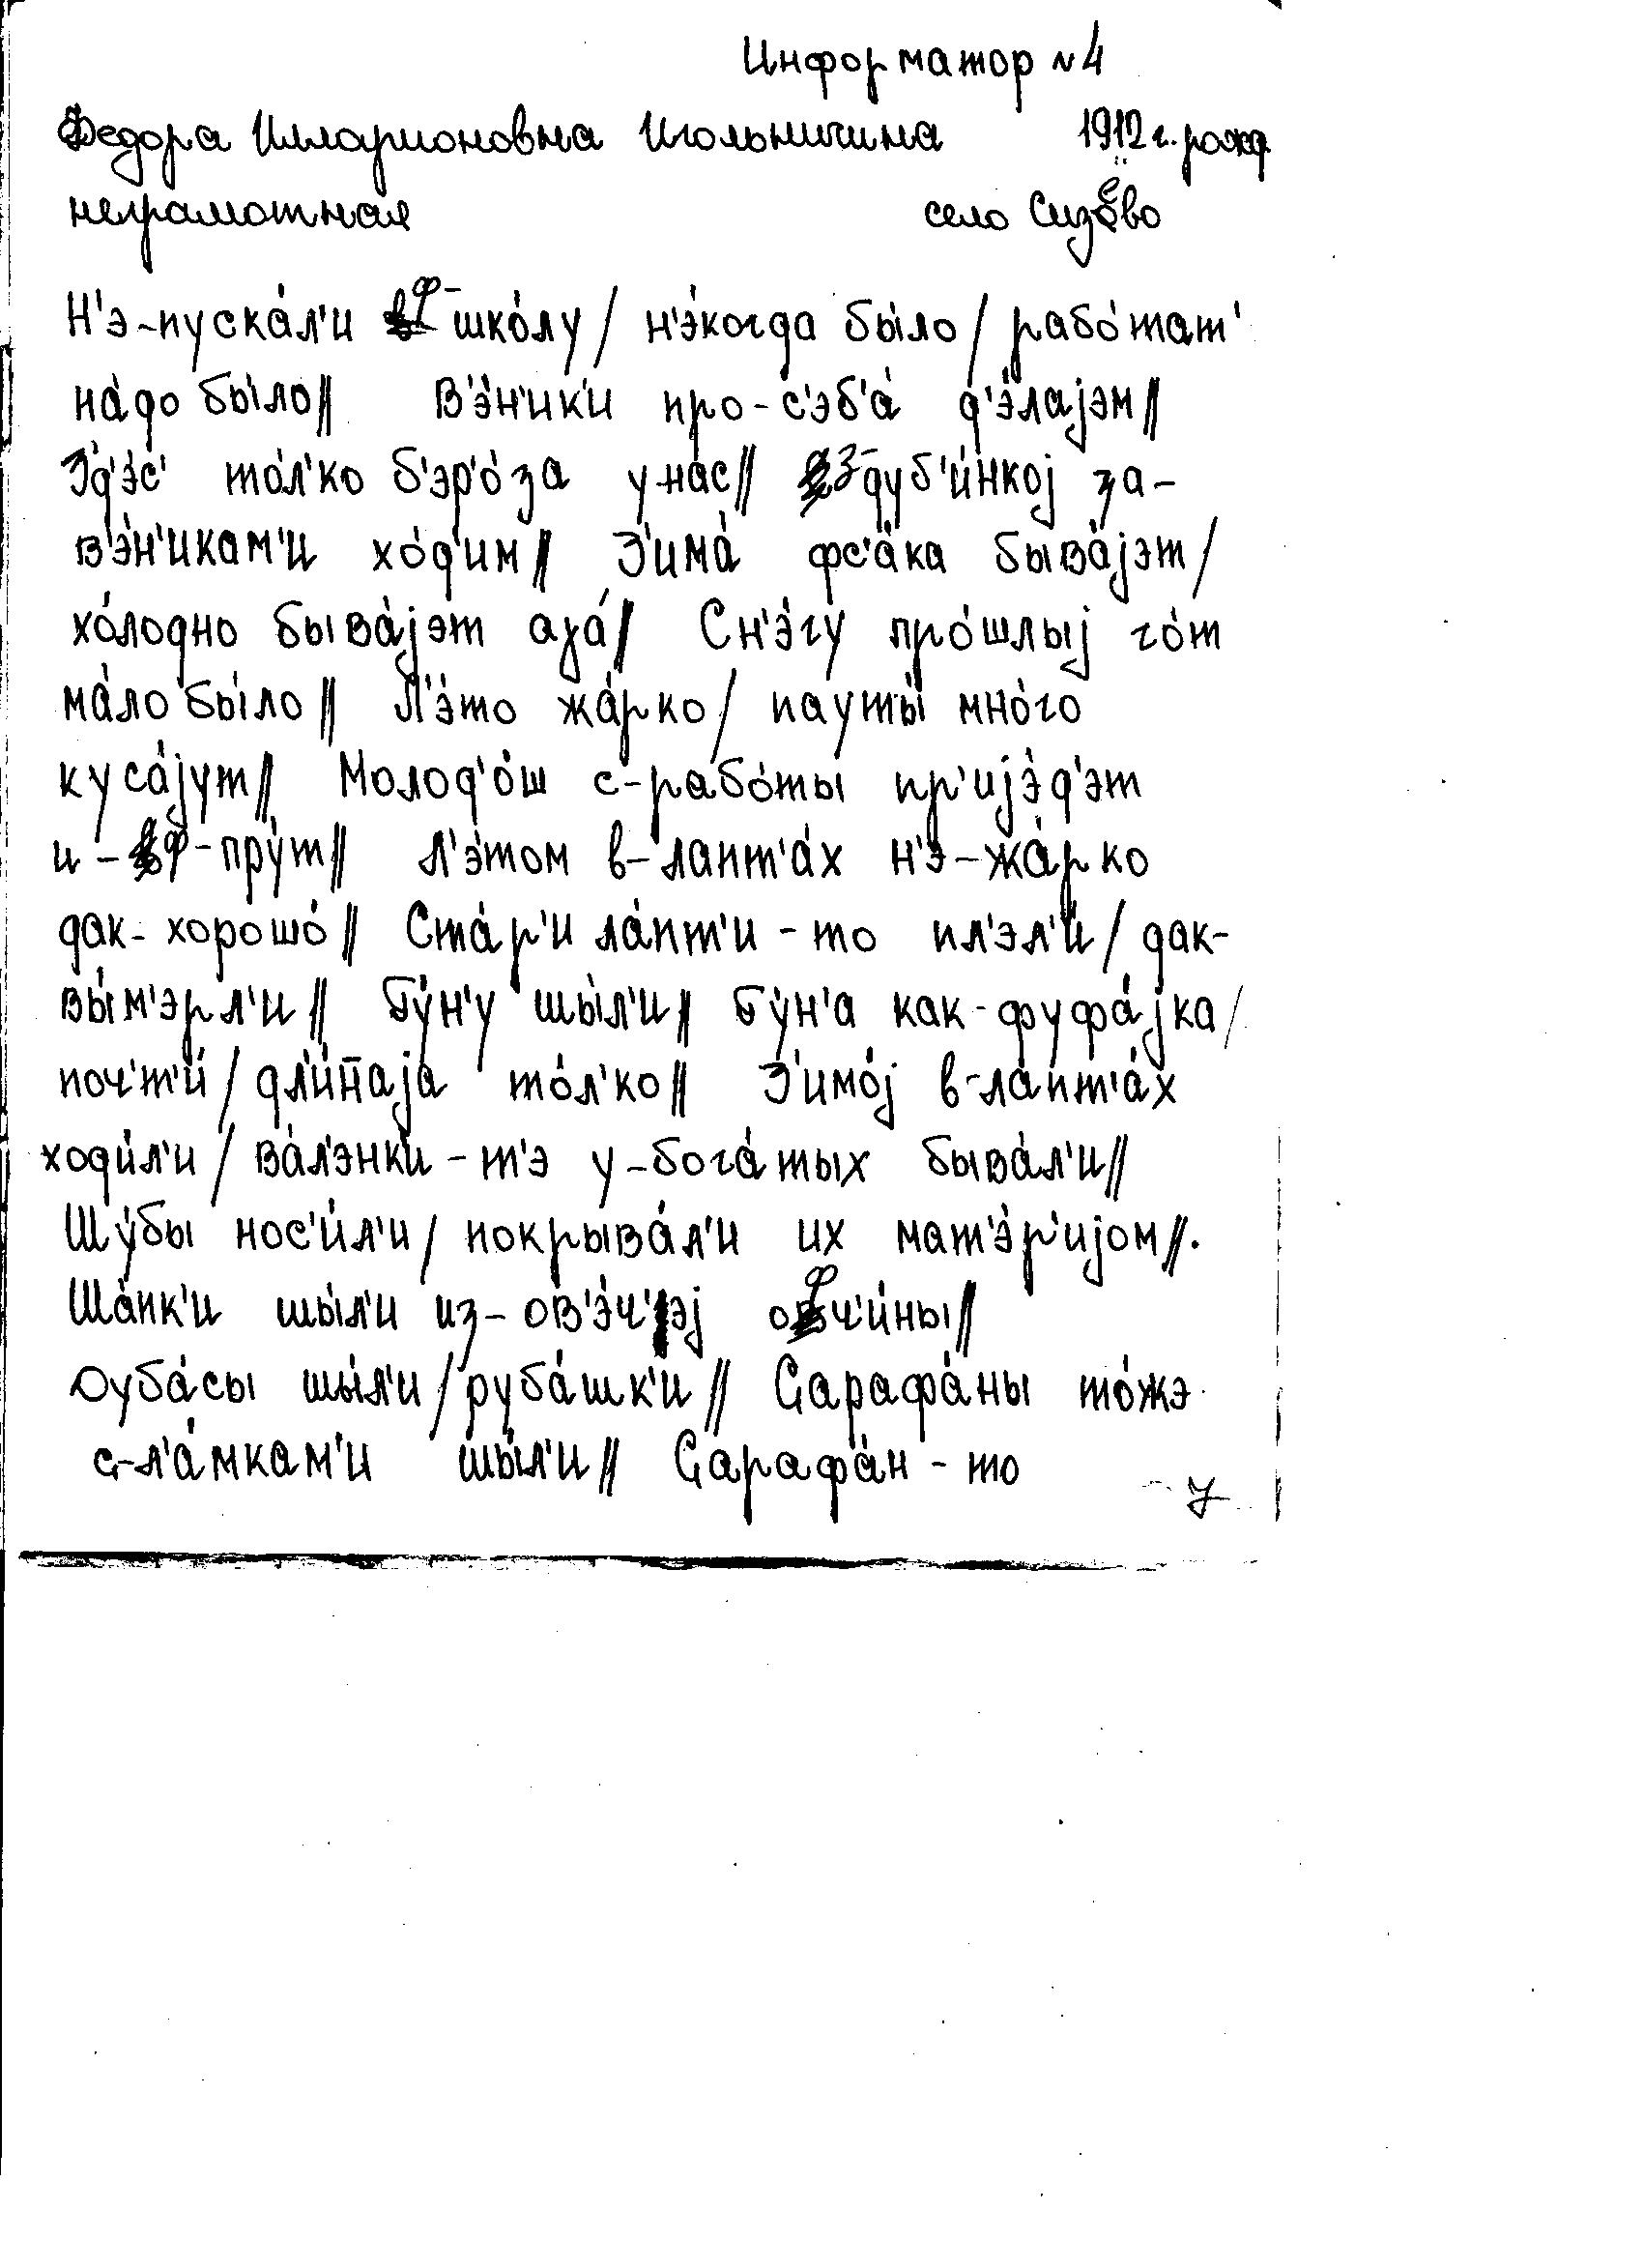 Информатор №4
Федора Илларионовна Игольничина 1912 г. рожд
неграмотная село Сизёво
Н'э-пуска́л'и ф-шко́лу/ н'э́когда бы́ло/ рабо́тат'
на́до бы́ло// В'э́н'ик'и про-с'эб'а́ д'э́лајэм//
З'д'э́с' то́л'ко б'эр'о́за у-на́с// з-дуб'и́нкој за-
в'э́н'икам'и хо́д'им// З'има́ фс'а́ка быва́јэт/
хо́лодно быва́јэт ага́// Сн'э́гу про́шлыј го́т
ма́ло бы́ло// Л'э́то жа́рко/ пауты́ мно́го
куса́јут// Молод'о́ш с-рабо́ты пр'ијэ́д'эт
и-ф-пру́т// Л'э́том в-лапт'а́х н'э-жа́рко
дак-хорошо́// Ста́р'и ла́пт'и-то пл'эл'и́/ дак-
вы́м'эрл'и// Гу́н'у шы́л'и// Гу́н'а как-фуфа́јка/
поч'т'и́/ дл'и́н̄аја то́л'ко// З'имо́ј в-лапт'а́х
ход'и́л'и/ ва́л'энк'и-т'э у-бога́тых быва́л'и//
Шу́бы нос'и́л'и/ покрыва́л'и их мат'э́р'ијом//.
Ша́пк'и шы́л'и из-ов'э́ч'эј офч'и́ны//
Дуба́сы шы́л'и/ руба́шк'и// Сарафа́ны то́жэ
с-л'а́мкам'и шы́л'и// Сарафа́н-то
7